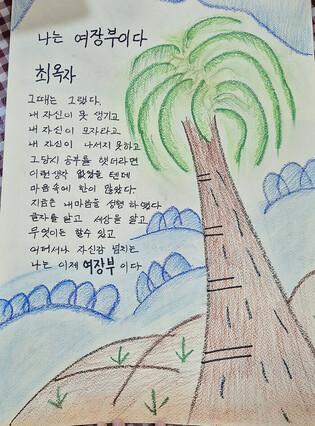 나는 여장부이다
최옥자
그때는 그랬다.
내 자신이 못 생기고
내 자신이 모자라고
내 자신이 나서지 못하고
그당시 공부를 했더라면
이런생각 없었을 텐데
마음속에 한이 많았다
지금은 내마음을 성형 하였다
글자를 알고 세상을 알고
무엇이든 할수 있고
어디서나 자신감 넘치는
나는 이제 여장부 이다